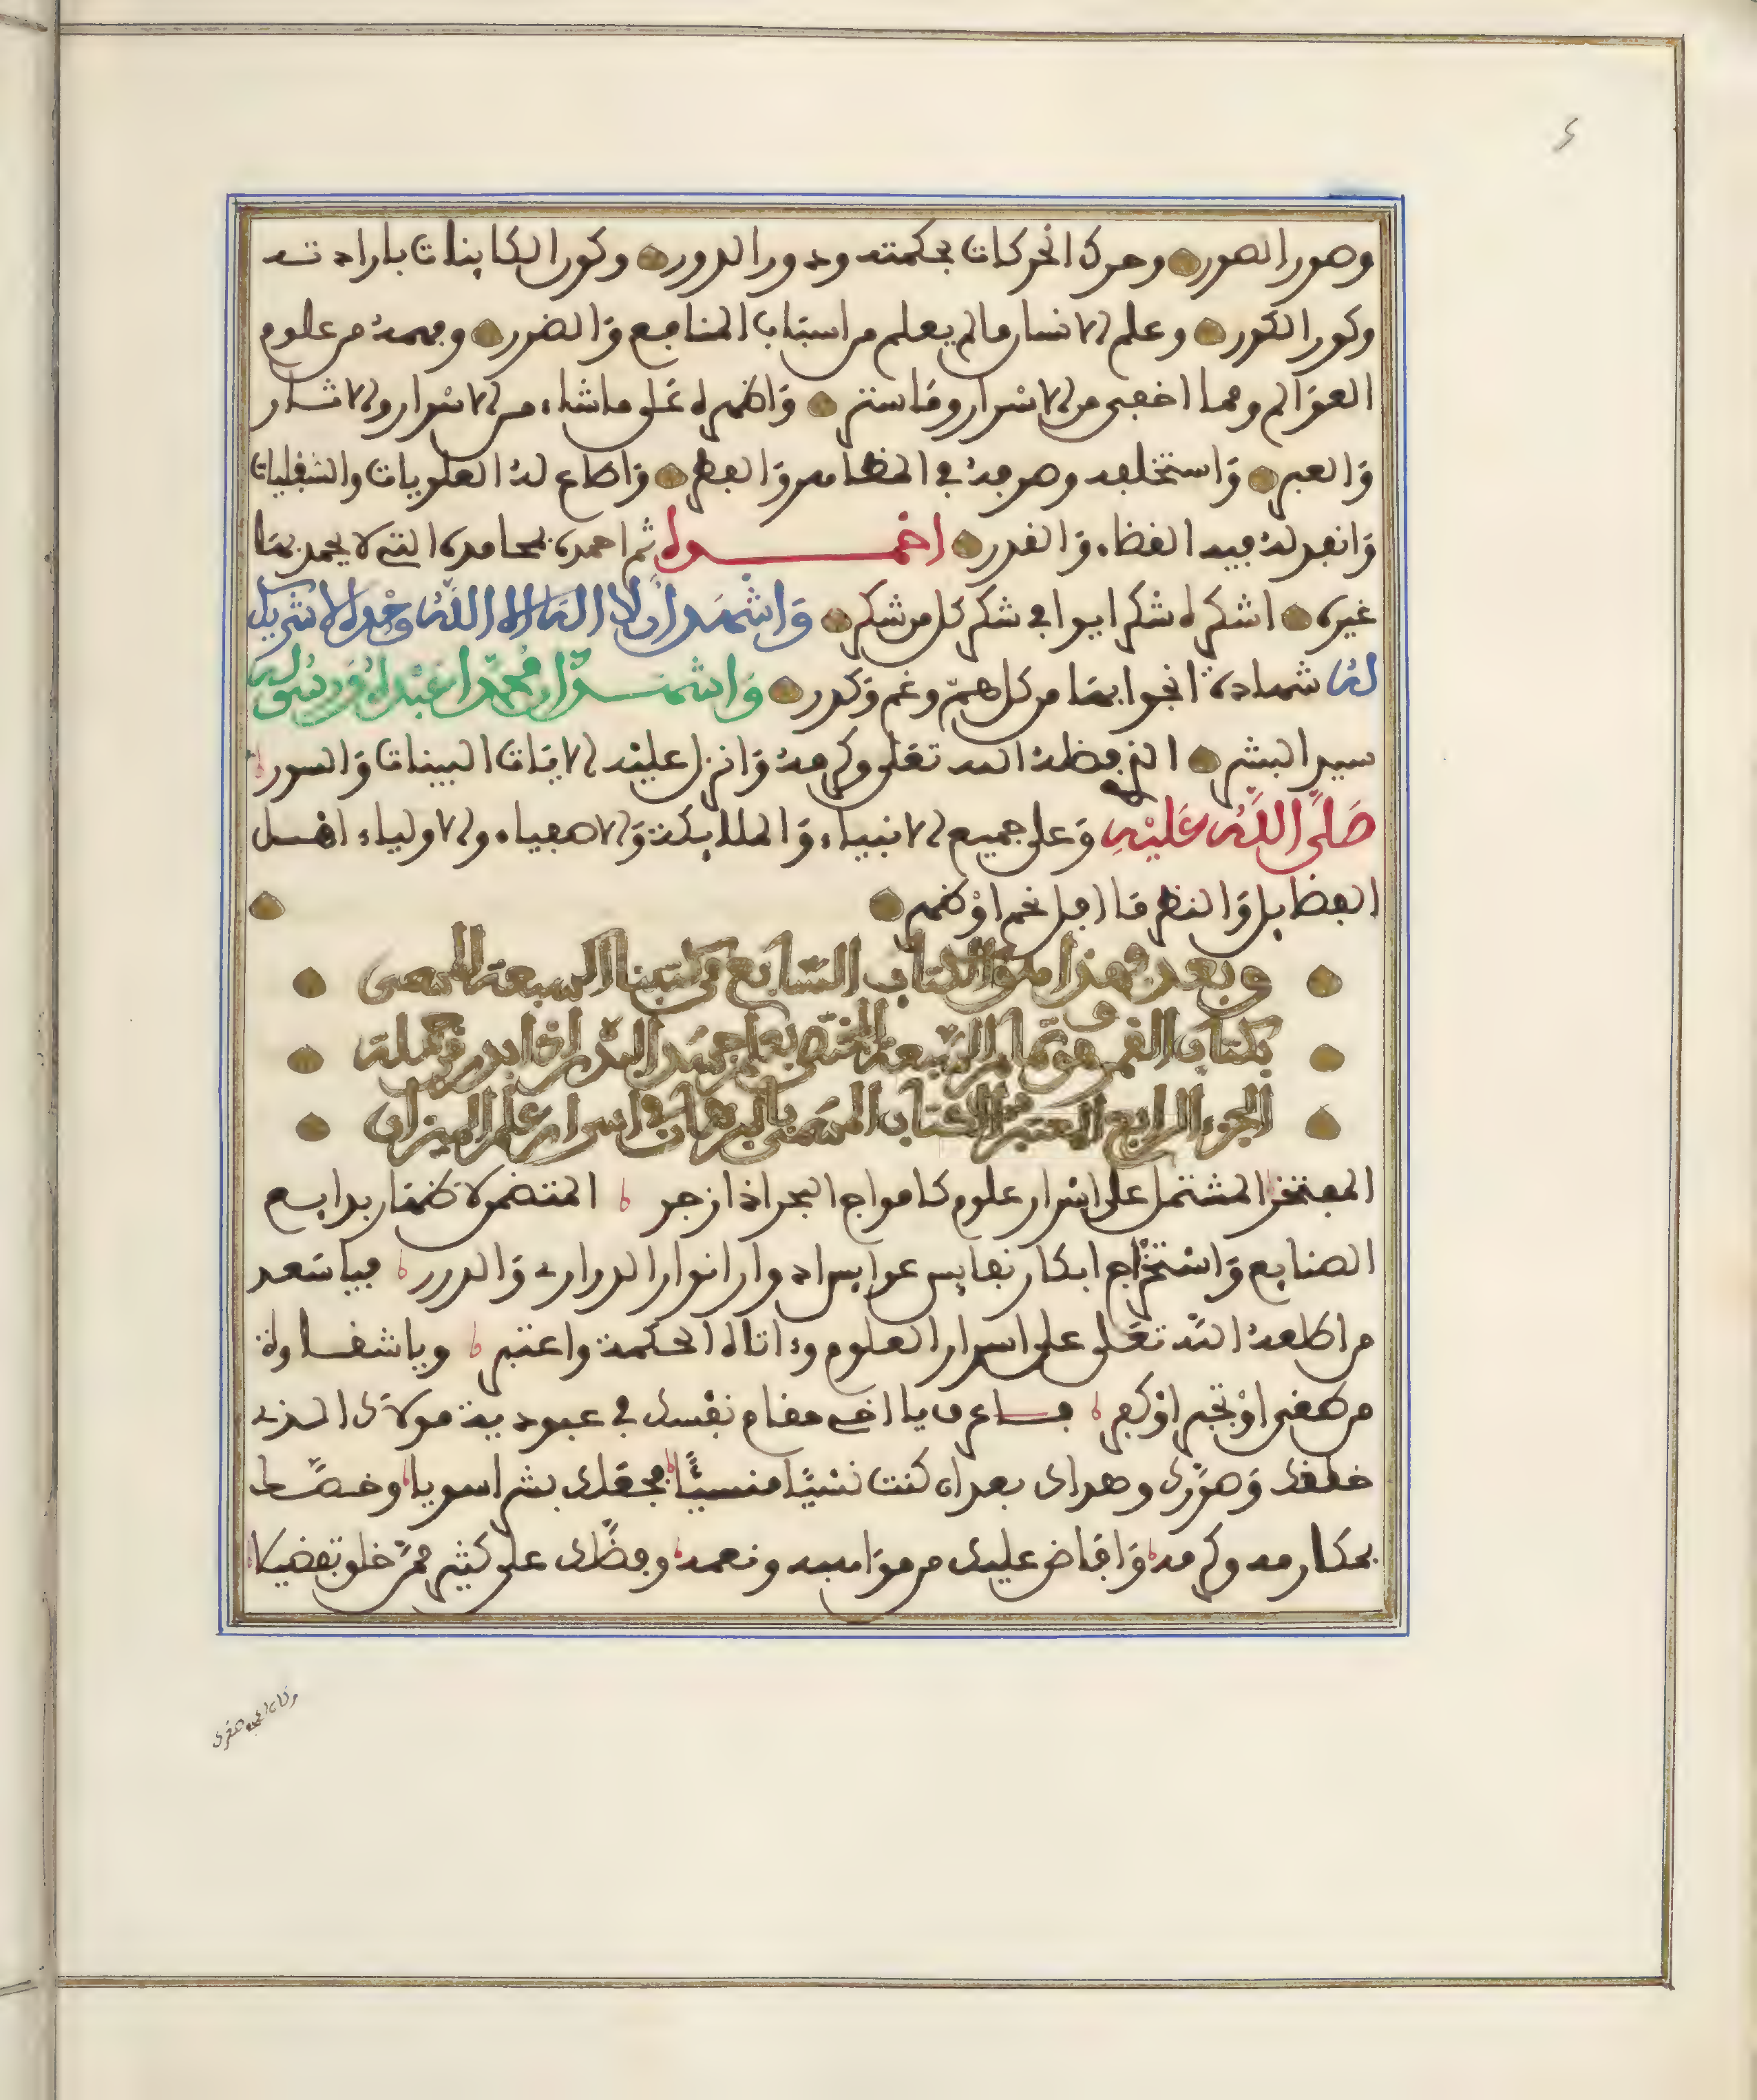 وصور الصور وحرك الحركات بحكمته ودور الدور وكور الكاينات بارادته
وكور الكور وعلم الانسان مالم يعلم من اسباب المنافع والضرر وفهمه من علوم
العوالم ومما اخفى من الاسرار وما ستر واظهره على ماشاء من الاسرار والاثار
والعبر واستخلفه وصرفه في المظاهر والفطر واطاع له العلويات والسفليات
وانفد له فيه القضاء والقدر احمده ثم احمده بمحامده التى لا يحمد بها
غيره اشكره شكرا يوافى شكر كل من شكر واشهد ان لا اله الا الله وحده لا شريك
له شهادة انجوا بها من كل هم وغم وكدر واشهد ان محمدا عبده ورسوله
سيد البشر الذى فضله الله تعلى وكرمه وانزل عليه الايات البينات والسور
صلى الله عليه وعلى جميع الانبياء والملايكة والاصفياء والاولياء اهل
الفضايل والنظر ما افل نجم او ظهر
وبعد فهذا هو الكتاب السابع من كتبنا السبعة المسمى
بكتاب القمر وهو تمام السبعة المختص بعلم جسد البدر اذا ابدر من جملة
الجزء الرابع المعتبر من الكتاب المسمى بالبرهان في اسرار علم الميزان
المفتخر المشتمل على اسرار علوم كامواج البحر اذا زجر المتضمن لاظهار بدايع
الصنايع واستخراج ابكار نفايس عرايس ادوار انوار الدرارى والدرر فيا سعد
من اطلعه الله تعلى على اسرار العلوم وءاتاه الحكمة واعتبر ويا شقاوة
من طغى او تجبر او كفر فاعرف يا اخى مقام نفسك في عبودية مولاك الذى
خلقك وصورك وهداك بعد ان كنت نسيا منسيا فجعلك بشرا سويا وخصك
بمكارمه وكرمه وافاض عليك من مواهبه ونعمه وفضلك على كثير ممن خلق تفضيلا